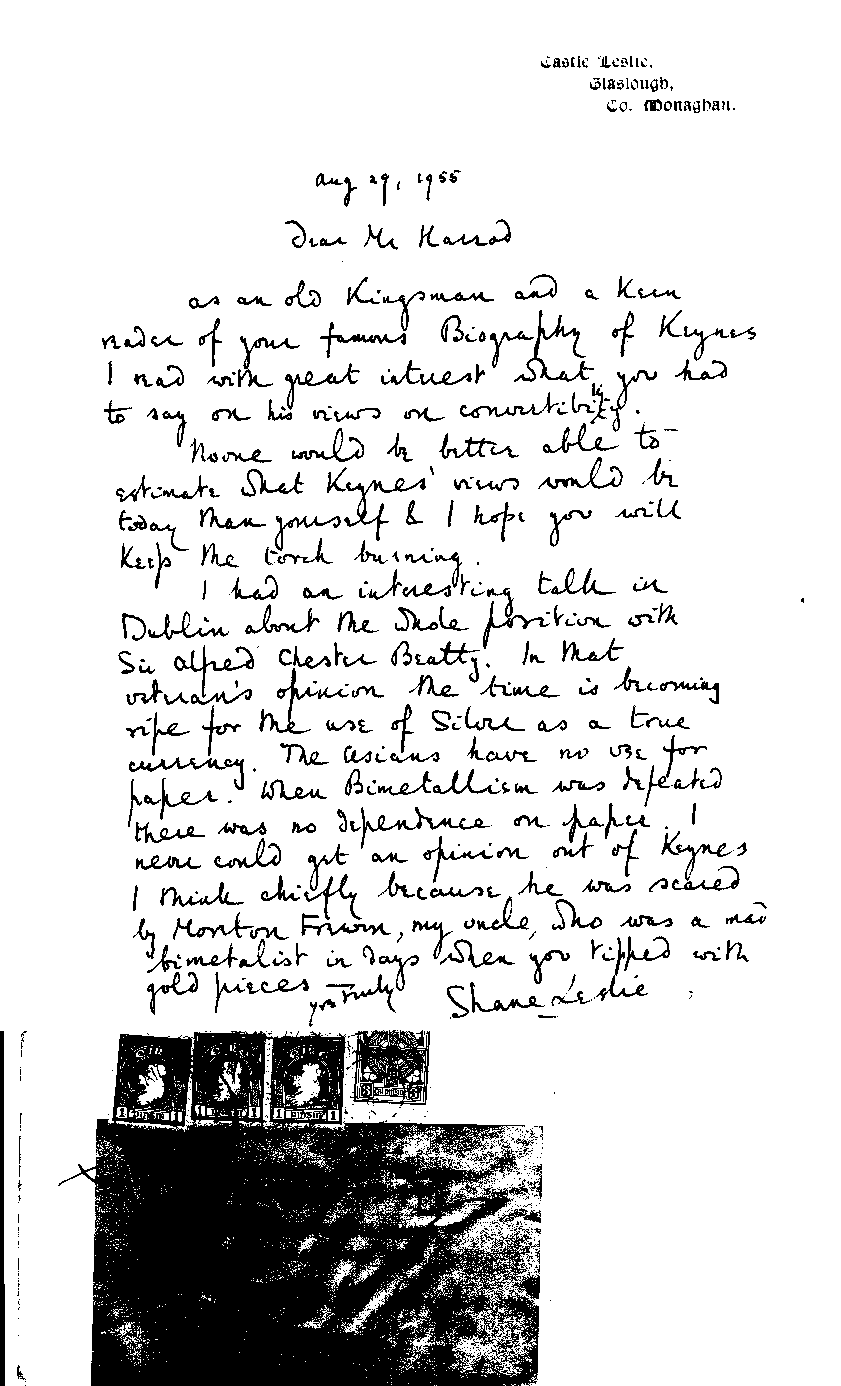 Castle Leslie,
Glaslough,
Co. Monaghan.
Aug 29, 1955
Dear Mr Harrod
as an old Kingsman and a keen
reader of your famous Biography of Keynes
I read with great interest what you had
to say on his views on convertibility.
Noone would be better able to
estimate what Keynes' views would be
today than yourself & I hope you will
keep the torch burning.
I had an interesting talk in
Dublin about the whole position with
Sir Alfred Chester Beatty. In that
veteran's opinion the time is becoming
ripe for the use of Silver as a true
currency. The Asians have no use for
paper. When Bimetallism was defeated
there was no dependence on paper. I
never could get an opinion out of Keynes
I think chiefly because he was scared
by Moreton Frewen, my uncle, who was a mad
bimetalist in days when you tipped with
gold pieces
yrs truly Shane Leslie